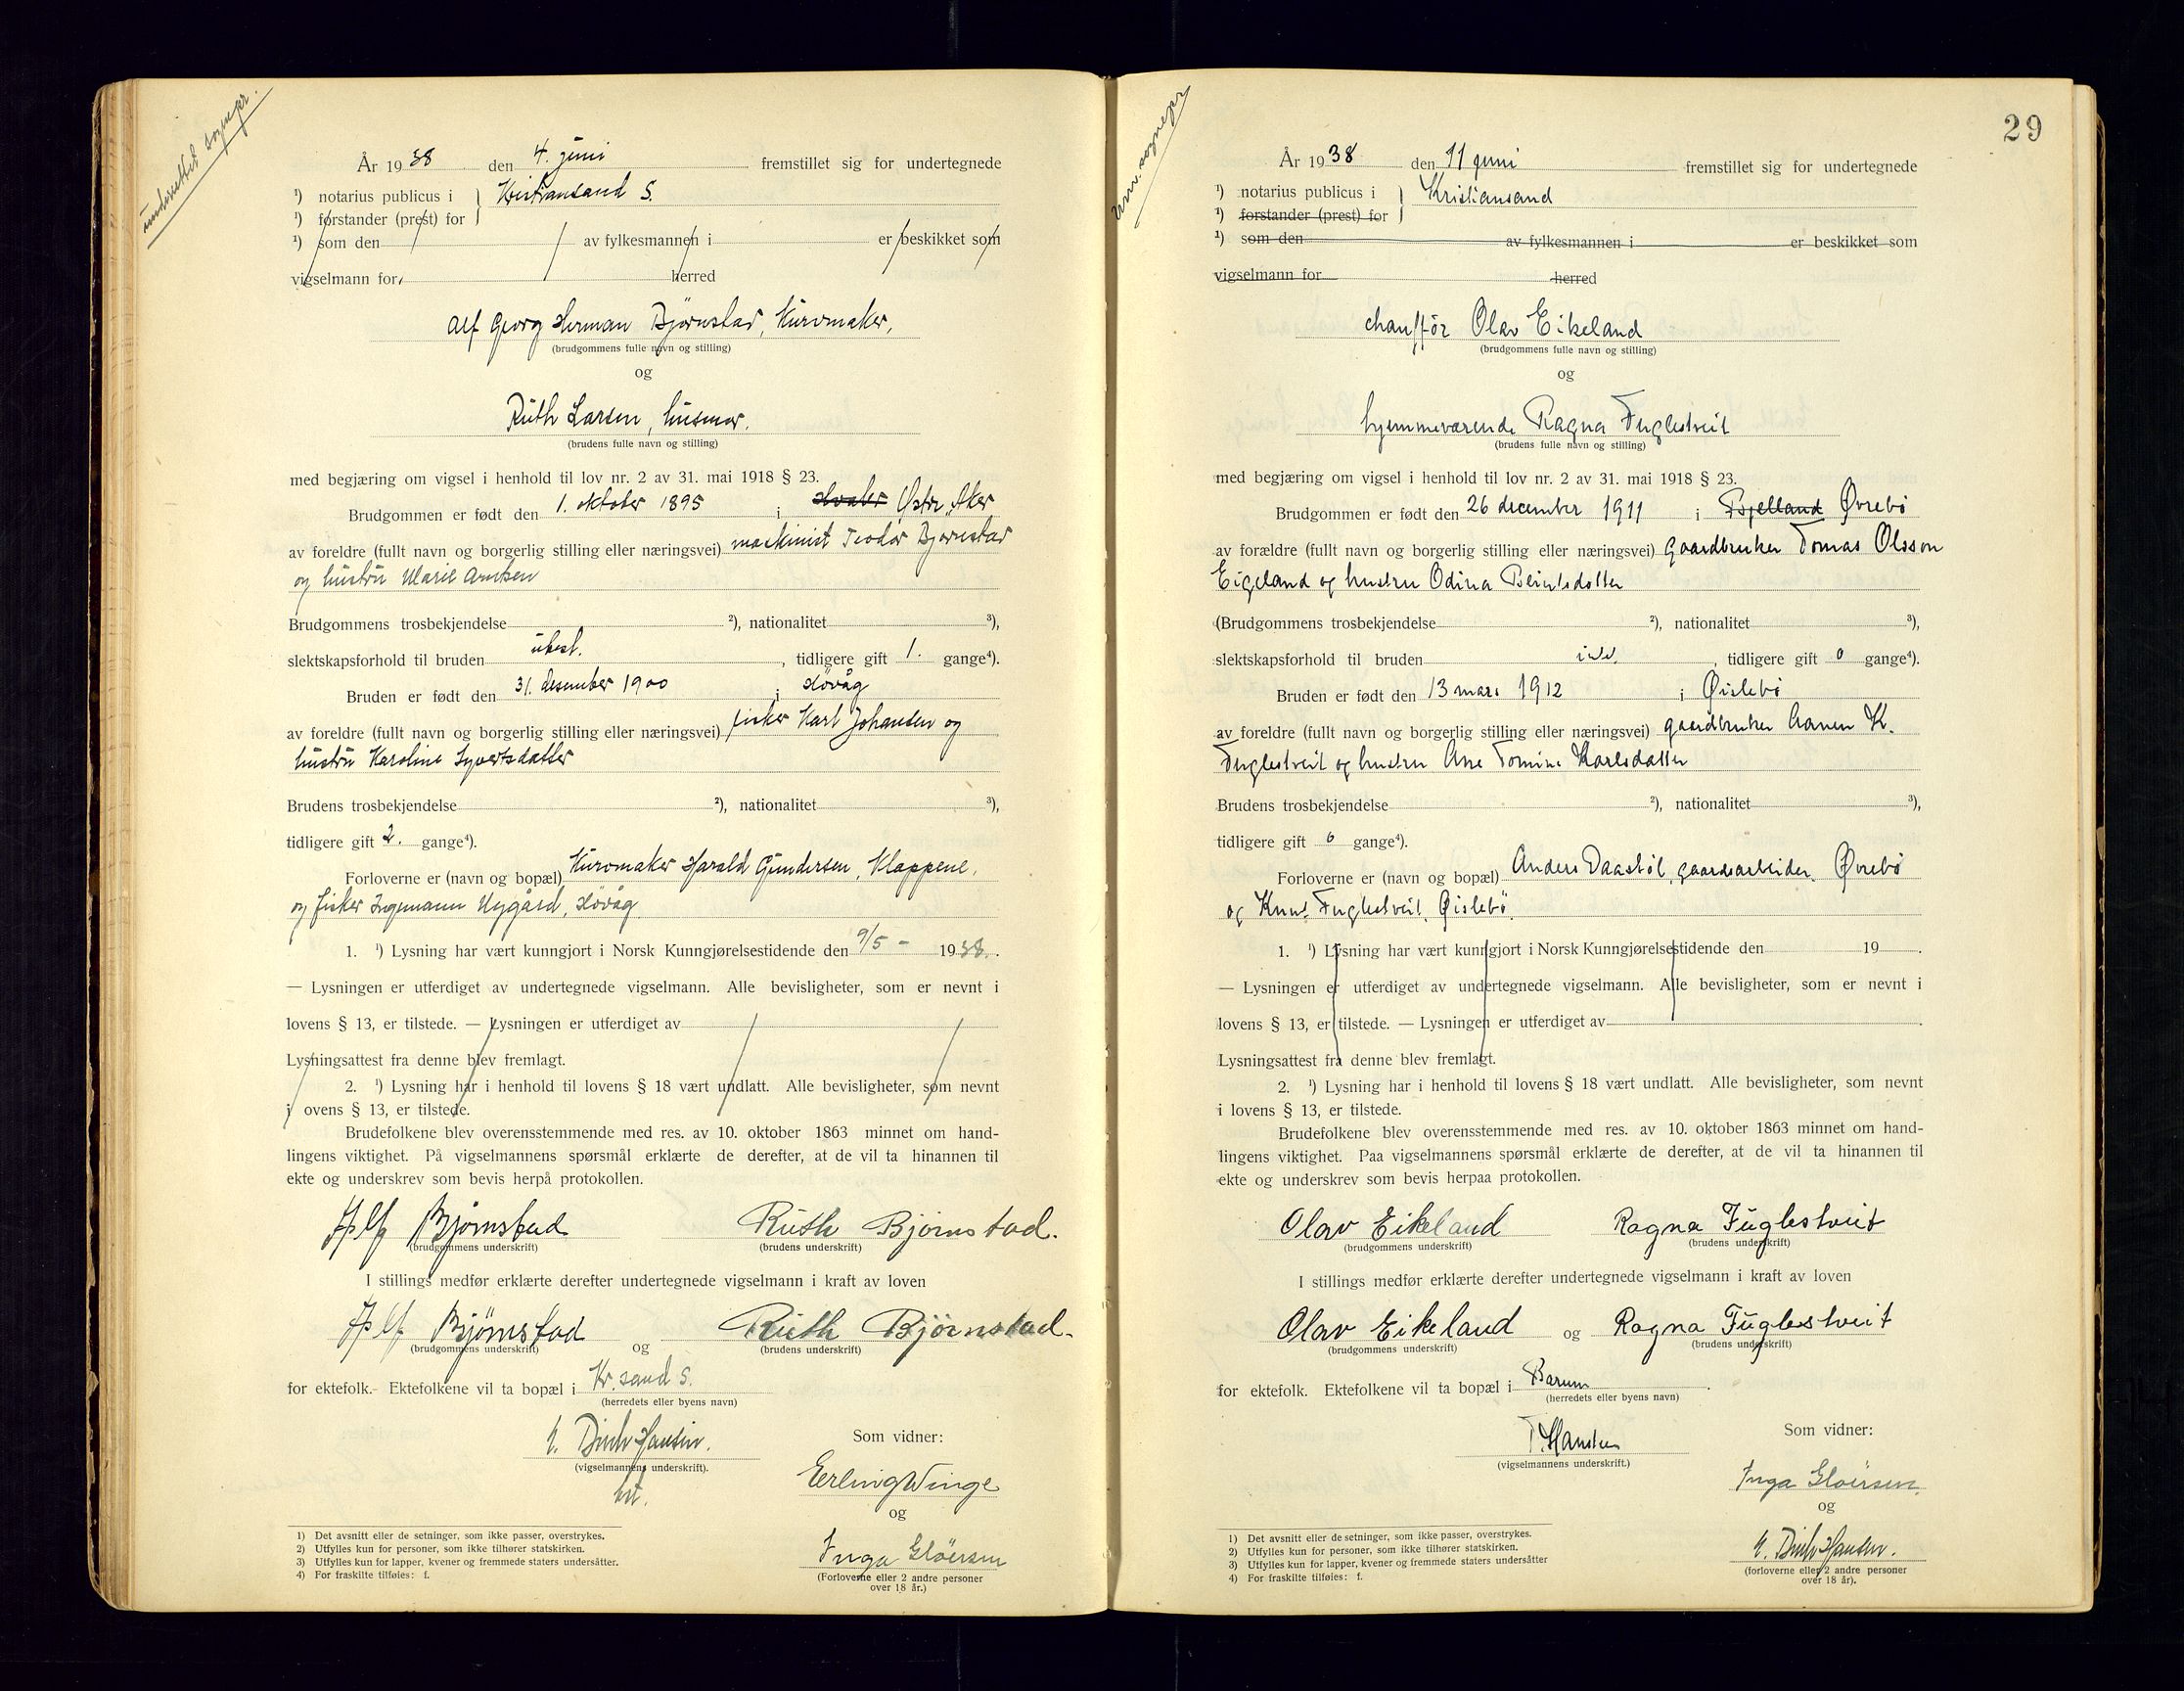 underrettet sognepr.
År 1938 den 4. juni fremstillet sig for undertegnede
¹) notarius publicus i } Kristiansand S.
¹) forstander (prest) for
¹) som den av fylkesmannen i er beskikket som
vigselmann for herred
Alf Georg Herman Bjørnstad, kurvmaker,
(brudgommens fulle navn og stilling)
og
Ruth Larsen, husmor.
(brudens fulle navn og stilling)
med begjæring om vigsel i henhold til lov nr. 2 av 31. mai 1918 § 23.
Brudgommen er født den 1. oktober 1895 i Hvaler Østre Aker
av foreldre (fullt navn og borgerlig stilling eller næringsvei) maskinist Teodor Bjørnstad
og hustru Marie Arntsen
Brudgommens trosbekjendelse ²), nationalitet ³),
slektskapsforhold til bruden ubesl. , tidligere gift 1. gange⁴).
Bruden er født den 31. desember 1900 i Høvåg
av foreldre (fullt navn og borgerlig stilling eller næringsvei) fisker Karl Johansen og
hustru Karoline Syvertsdatter
Brudens trosbekjendelse ²), nationalitet ³),
tidligere gift 2. gange⁴).
Forloverne er (navn og bopæl) Kurvmaker Harald Gundersen, Klappene,
og fisker Ingemann Nygård, Høvåg
1. ¹) Lysning har vært kunngjort i Norsk Kunngjørelsestidende den 9/5 - 1938.
— Lysningen er utferdiget av undertegnede vigselmann. Alle bevisligheter, som er nevnt i
lovens § 13, er tilstede. — Lysningen er utferdiget av
Lysningsattest fra denne blev fremlagt.
2. ¹) Lysning har i henhold til lovens § 18 vært undlatt. Alle bevisligheter, som nevnt
i ovens § 13, er tilstede.
Brudefolkene blev overensstemmende med res. av 10. oktober 1863 minnet om hand-
lingens viktighet. På vigselmannens spørsmål erklærte de derefter, at de vil ta hinannen til
ekte og underskrev som bevis herpå protokollen.
Alf Bjørnstad Ruth Bjørnstad.
(brudgommens underskrift) (brudens underskrift)
I stillings medfør erklærte derefter undertegnede vigselmann i kraft av loven
Alf Bjørnstad og Ruth Bjørnstad.
(brudgommens underskrift) (brudens underskrift)
for ektefolk.- Ektefolkene vil ta bopæl i Kr.sand S.
(herredets eller byens navn)
E. Dirch Hansen.
(vigselmannens underskrift).
Som vidner:
Erling Winge
og
Inga Gløersen
(Forloverne eller 2 andre personer
over 18 år.)
1) Det avsnitt eller de setninger, som ikke passer, overstrykes.
2) Utfylles kun for personer, som ikke tilhører statskirken.
3) Utfylles kun for lapper, kvener og fremmede staters undersåtter.
4) For fraskilte tilføies: f.
29
Unr. sognepr
År 1938 den 11 juni fremstillet sig for undertegnede
¹) notarius publicus i } Kristiansand
¹) forstander (prest) for
¹) som den av fylkesmannen i er beskikket som
vigselmann for herred
chauffør Olav Eikeland
(brudgommens fulle navn og stilling)
og
hjemmeværende Ragna Fuglestveit
(brudens fulle navn og stilling)
med begjæring om vigsel i henhold til lov nr. 2 av 31. mai 1918 § 23.
Brudgommen er født den 26 december 1911 i Bjelland Øvrebø
av forældre (fullt navn og borgerlig stilling eller næringsvei) gaardbruker Tomas Olsson
Eigeland og hustru Odina Beintsdatter
(Brudgommens trosbekjendelse ²), nationalitet ³),
slektskapsforhold til bruden , tidligere gift 0 gange⁴).
Bruden er født den 13 mars 1912 i Øislebø
av foreldre (fullt navn og borgerlig stilling eller næringsvei) gaardbruker Aanen K.
Fuglestveit og hustru Ane Tomine Karlsdatter
Brudens trosbekjendelse ²), nationalitet ³),
tidligere gift 0 gange⁴).
Forloverne er (navn og bopæl) Anders Daastøl, gaardsarbeider, Øvrebø
og Knut Fuglestveit, Øislebø
1. ¹) Lysning har vært kunngjort i Norsk Kunngjørelsestidende den 19 .
— Lysningen er utferdiget av undertegnede vigselmann. Alle bevisligheter, som er nevnt i
lovens § 13, er tilstede. — Lysningen er utferdiget av .
Lysningsattest fra denne blev fremlagt.
2. ¹) Lysning har i henhold til lovens § 18 vært undlatt. Alle bevisligheter, som nevnt
i lovens § 13, er tilstede.
Brudefolkene blev overensstemmende med res. av 10. oktober 1863 minnet om hand-
lingens viktighet. Paa vigselmannens spørsmål erklærte de derefter, at de vil ta hinannen til
ekte og underskrev som bevis herpaa protokollen.
Olav Eikeland Ragna Fuglestveit
(brudgommens underskrift) (brudens underskrift)
I stillings medfør erklærte derefter undertegnede vigselmann i kraft av loven
Olav Eikeland og Ragna Fuglestveit
(brudgommens underskrift) (brudens underskrift)
for ektefolk. Ektefolkene vil ta bopæl i Bærum .
(herredets eller byens navn)
T. Hansen
(vigselmannens underskrift.)
Som vidner:
Inga Gløersen.
og
E. Dirch Hansen.
(forloverne eller 2 andre personer
over 18 år).
1) Det avsnitt eller de setninger, som ikke passer, overstrykes.
2) Utfylles kun for personer, som ikke tilhører statskirken.
3) Utfylles kun for lapper, kvener og fremmede staters undersåtter
4) For fraskilte tilføies: f.